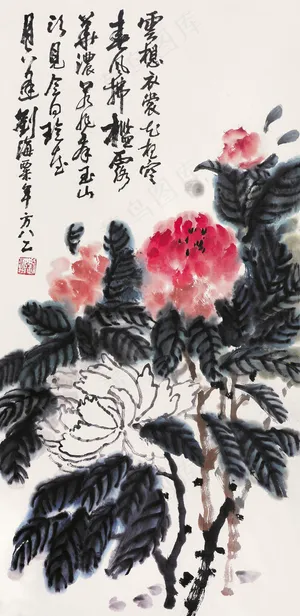 雲想衣裳花想容
春風拂檻露
華濃若非群玉山
頭見會向瑶臺
月下逢劉海粟年方八二